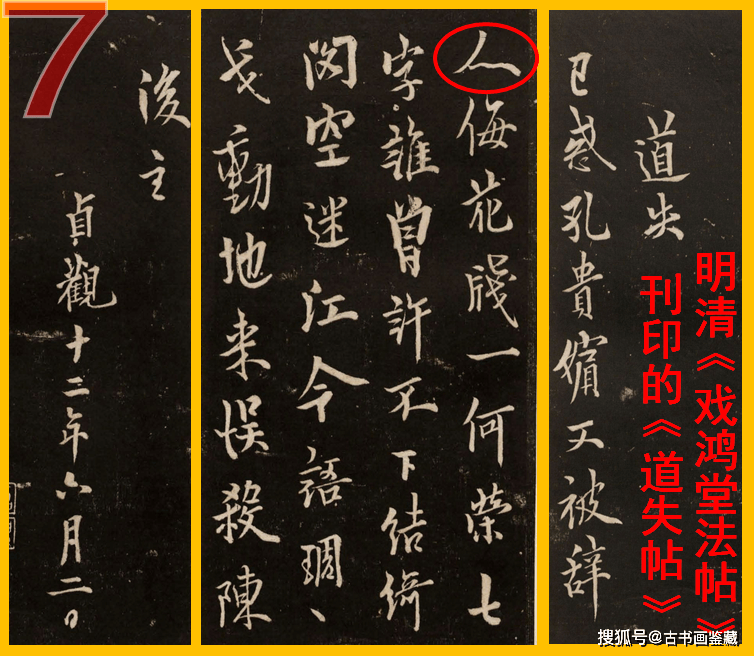 7
明清《戏鸿堂法帖》
刊印的《道失帖》
道失
已惑孔貴嬪又被辞
人侮花牋一何榮七
字誰曾許不下結綺
閣空迷江令語琱、
戈動地来悞殺陳
後主
貞觀十二年六月二日
搜狐号@古书画鉴藏